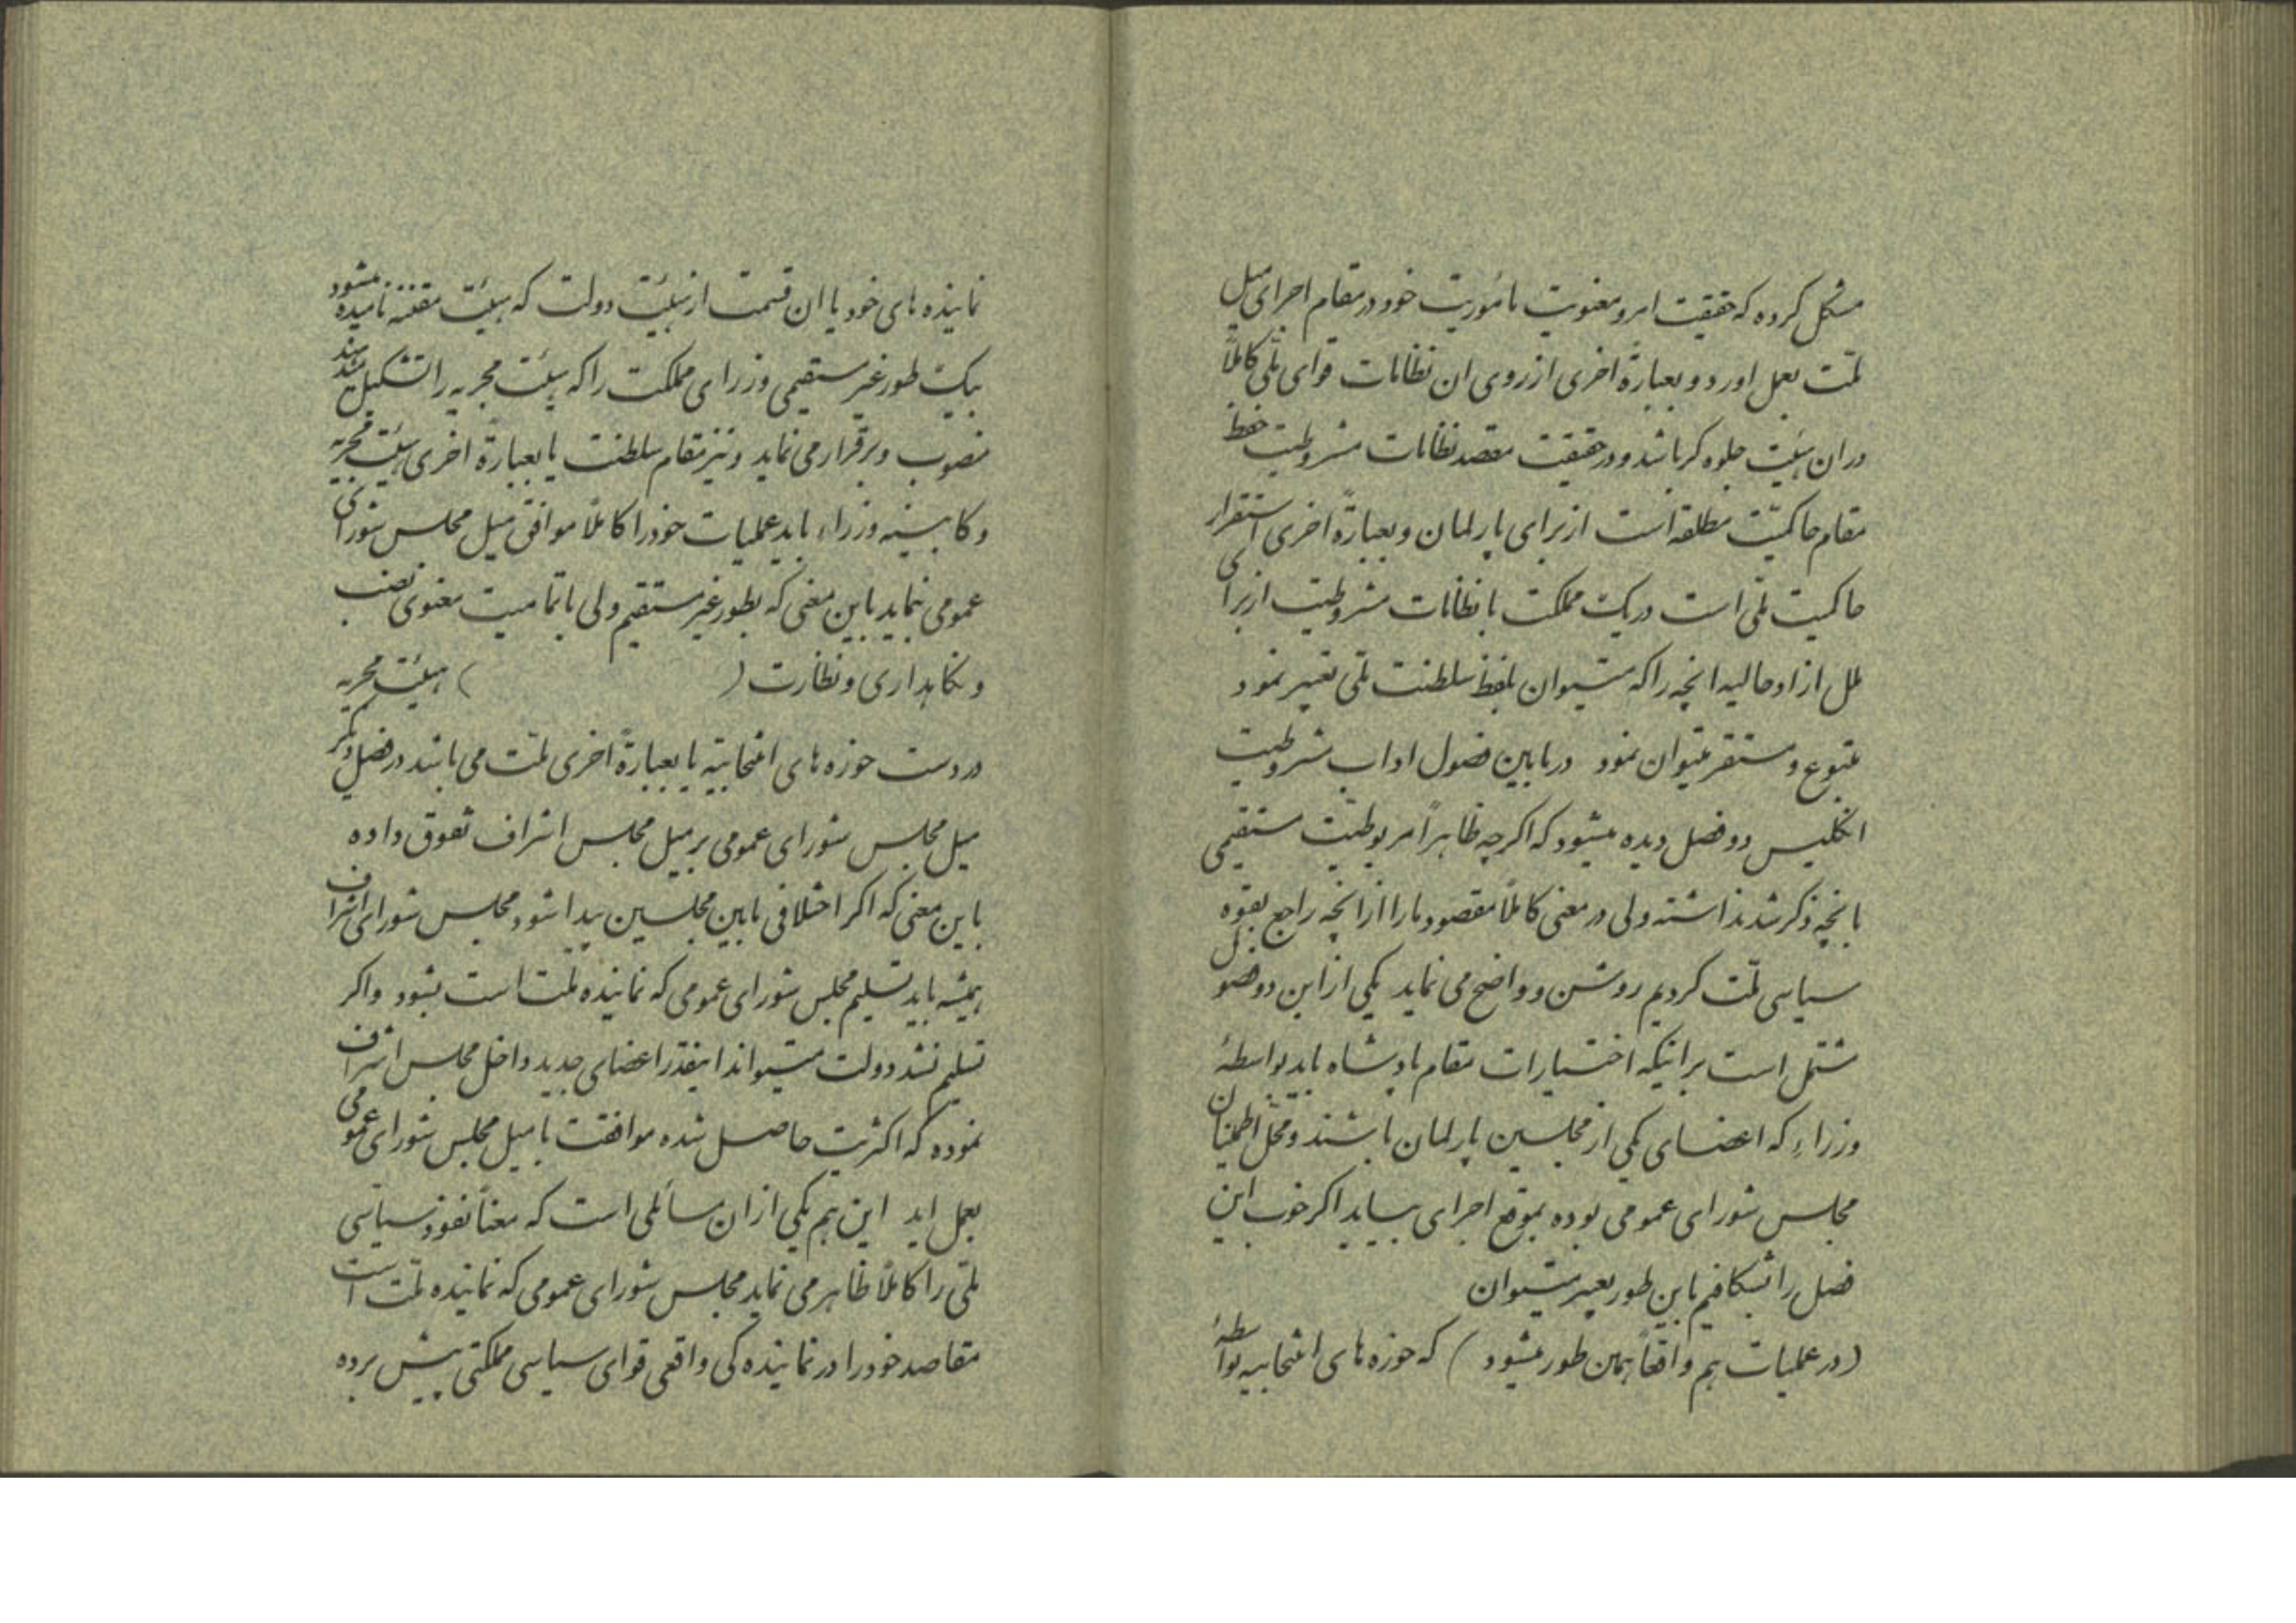 مشکل کرده که حقیقت امر و معنویت مأموریت خود در مقام اجرای میل
ملّت بعمل اورد و بعبارة اخری از روی ان نظامات قوای ملّی کاملاً
در ان هیئت جلوه کر باشد و در حقیقت مقصد نظامات مشروطیت حفظ
مقام حاکمیّت مطلقه است از برای پارلمان و بعبارةً اخری استقرار
حاکمیت ملّی است در یک مملکت با نظامات مشروطیت از برای
ملل ازاد حالیه انچه را که میتوان بلفظ سلطنت ملّی تعبیر نمود
متبوع و مستقر میتوان نمود در مابین فصول اداب مشروطیت
انکلیس دو فصل دیده میشود که اکر چه ظاهراً مربوطیّت مستقیمی
بانچه ذکر شد نداشته ولی در معنی کاملاً مقصود ما را از انچه راجع بقوه
سیاسی ملّت کردیم روشن و واضح می نماید یکی از این دو فصول
مشتمل است بر اینکه اختیارات مقام پادشاه باید بواسطۀ
وزراء که اعضای یکی از مجلسین پارلمان باشند و محل اطمینان
مجلس شورای عمومی بوده بموقع اجرای بیاید اکر خوب این
فصل را بشکافیم باین طور تعبیر میتوان
(در عملیات هم واقعاً همین طور میشود) که حوزه های انتخابیه بواسطۀ
نماینده های خود یا ان قسمت از هیئت دولت که هیئت مقننه نامیده میشود
بیک طور غیر مستقیمی وزرای مملکت را که هیئت مجریه را تشکیل میدهند
منصوب و برقرار می نماید و نیز مقام سلطنت یا بعبارة اخری هیئت مجریه
و کابینه وزراء باید عملیات خود را کاملاً موافق میل مجلس شورای
عمومی نماید باین معنی که بطور غیر مستقیم ولی با تمامیت معنوی نصب
و نکاهداری و نظارت ( ) هیئت مجریه
در دست حوزه های انتخابیّه یا بعبارةً اخری ملّت می باشد در فصل دیکر
میل مجلس شورای عمومی بر میل مجلس اشراف تفوق داده
باین معنی که اکر اختلافی مابین مجلسین پیدا شود مجلس شورای اشراف
همیشه باید تسلیم مجلس شورای عمومی که نماینده ملّت است بشود و اکر
تسلیم نشد دولت میتواند اینقدر اعضای جدید داخل مجلس اشراف
نموده که اکثریت حاصل شده موافقت با میل مجلس شورای عمومی
بعمل اید این هم یکی از ان مسائلی است که معناً نفوذ سیاسی
ملّی را کاملاً ظاهر می نماید مجلس شورای عمومی که نماینده ملّت است
مقاصد خود را در نماینده کی واقعی قوای سیاسی مملکتی پیش برده